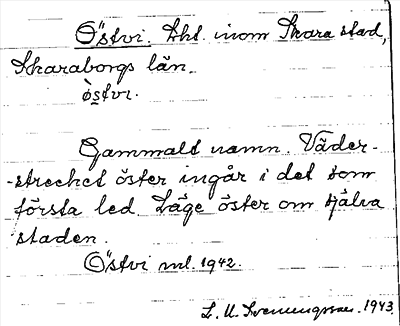 Östvi. Lht. inom Skara stad,
Skaraborgs län.
òstvi.
Gammalt namn. Väder-
-strecket öster ingår i det som
första led. Läge öster om själva
staden.
Östvi ml. 1942.
L. U. 1943.